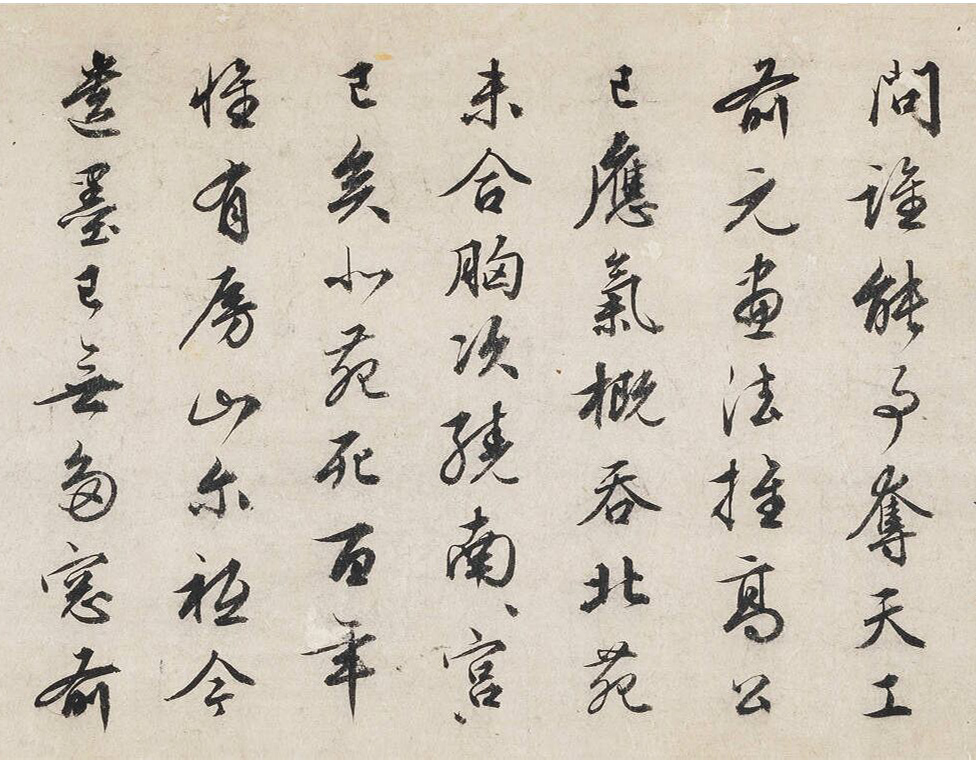 問誰能事奪天工
前元畫法推高公
已應氣概吞北苑
未合胸次繞南宮
已矣北苑死百年
惟有房山尔祗今
遺墨已無多窓前